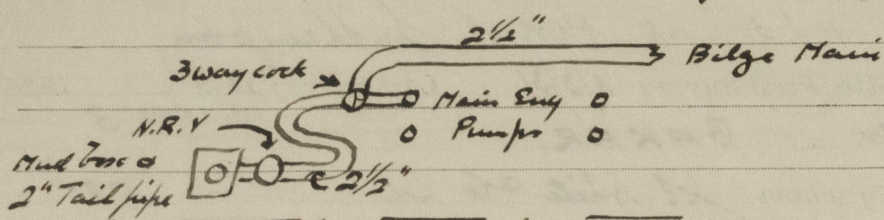 2½"
Bilge Main
3 way cock
Main Eng
Pumps
N.R.V
Mud box &
2" Tail pipe
2½"